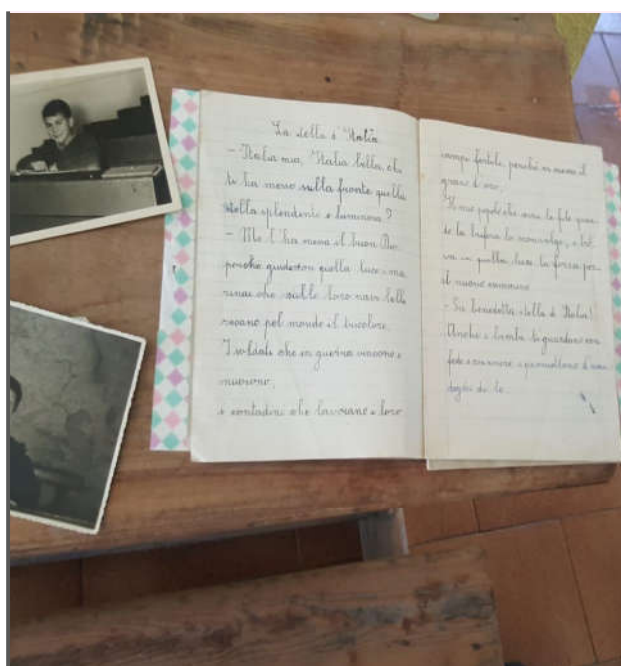 La stella d'Italia
- Italia mia, Italia bella, chi
ti ha messo sulla fronte quella
stella splendente e luminosa?
- Me l'ha messa il buon Dio
perché guidasse con quella luce i ma
rinai che sulle loro navi
recano pel mondo il tricolore.
I soldati che in guerra vincono e
muoiono,
i contadini che lavorano i loro
campi fertili, perché in messe il
grano d'oro,
Il mio popolo che ama la fede quan
de la bufera lo e tro
va in quella luce la forza per
il nuovo cammino
- Sii benedetta stella d'Italia!
Anche i bimbi ti guardano con
fede e con amore e promettono d'esser
degni di te.